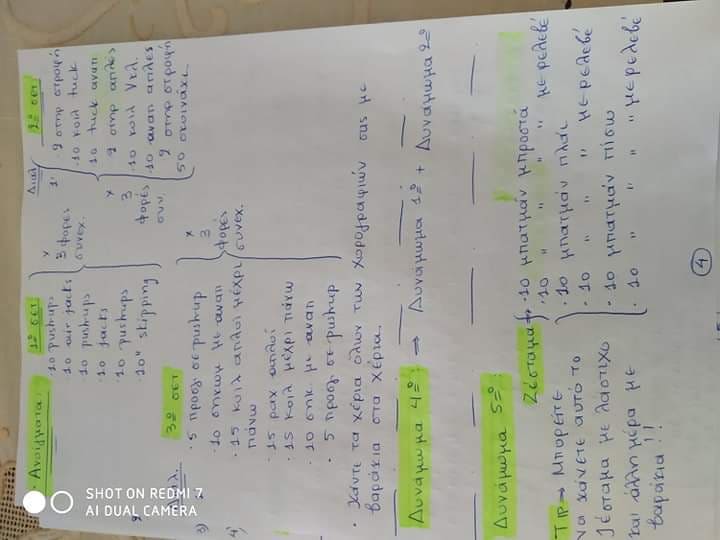 · Ανοίγματα:
1º σετ
· 10 pushups
· 10 air jacks
· 10 pushups
· 10 jacks
· 10 pushups
· 10" skipping
x
3 φορές
συνεχ.
Διαλ.
1'
2º σετ
· 2 στηρ στροφή
· 10 κοιλ tuck
· 10 tuck αναπ
2 στηρ απλές
· 10 κοιλ
· 10 αναπ απλες
2 στηρ στροφή
50 σκοινάκι
x
3
φορές
συν.
2)
Διαλ.
3)
4)
3º σετ
· 5 προσγ σε pushup
· 10 σηκωμ με αναπ
· 15 κοιλ απλοί μέχρι
πάνω
· 15 ραχ απλοί
· 15 κοιλ μέχρι πάνω
· 10 σηκ. με αναπ
· 5 προσγ σε pushup
x
3
φορές
συνεχ.
· Κάντε τα χέρια όλων των χορογραφιών σας με
βαράκια στα χέρια.
Δυνάμωμα 4º: → Δυνάμωμα 1º + Δυνάμωμα 2º
Δυνάμωμα 5º:
Ζέσταμα →
· 10 μπατμάν μπροστά
· 10 " " " με ρελεβέ
· 10 μπατμάν πλάι
· 10 " " " με ρελεβέ
· 10 μπατμάν πίσω
· 10 " " " με ρελεβέ
TIP → Μπορείτε
να κάνετε αυτό το
ζέσταμα με λάστιχο
και άλλη μέρα με
βαράκια!!
4
SHOT ON REDMI 7
AI DUAL CAMERA